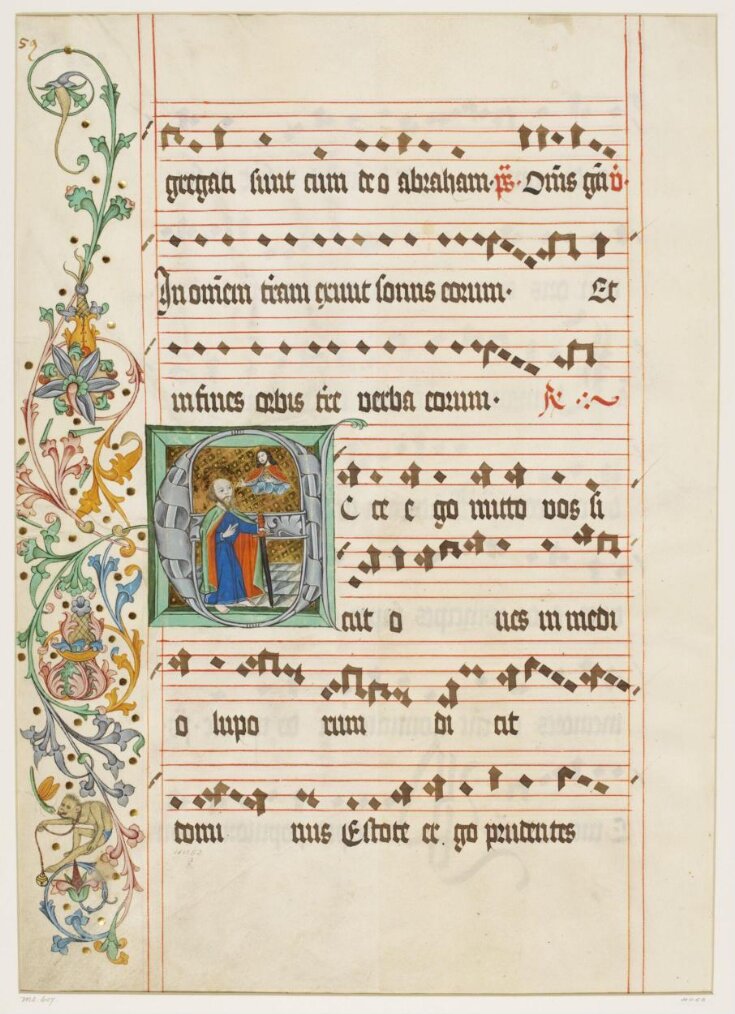 59
gregati sunt cum deo abraham. ps. Om̄s gā v.
In om̄em tr̄am exiuit sonus eorum. Et
in fines orbis tr̄e verba eorum.
C ce e go mitto vos si
cut o ues in medi
o lupo rum di cit
domi nus Estote er go prudentes